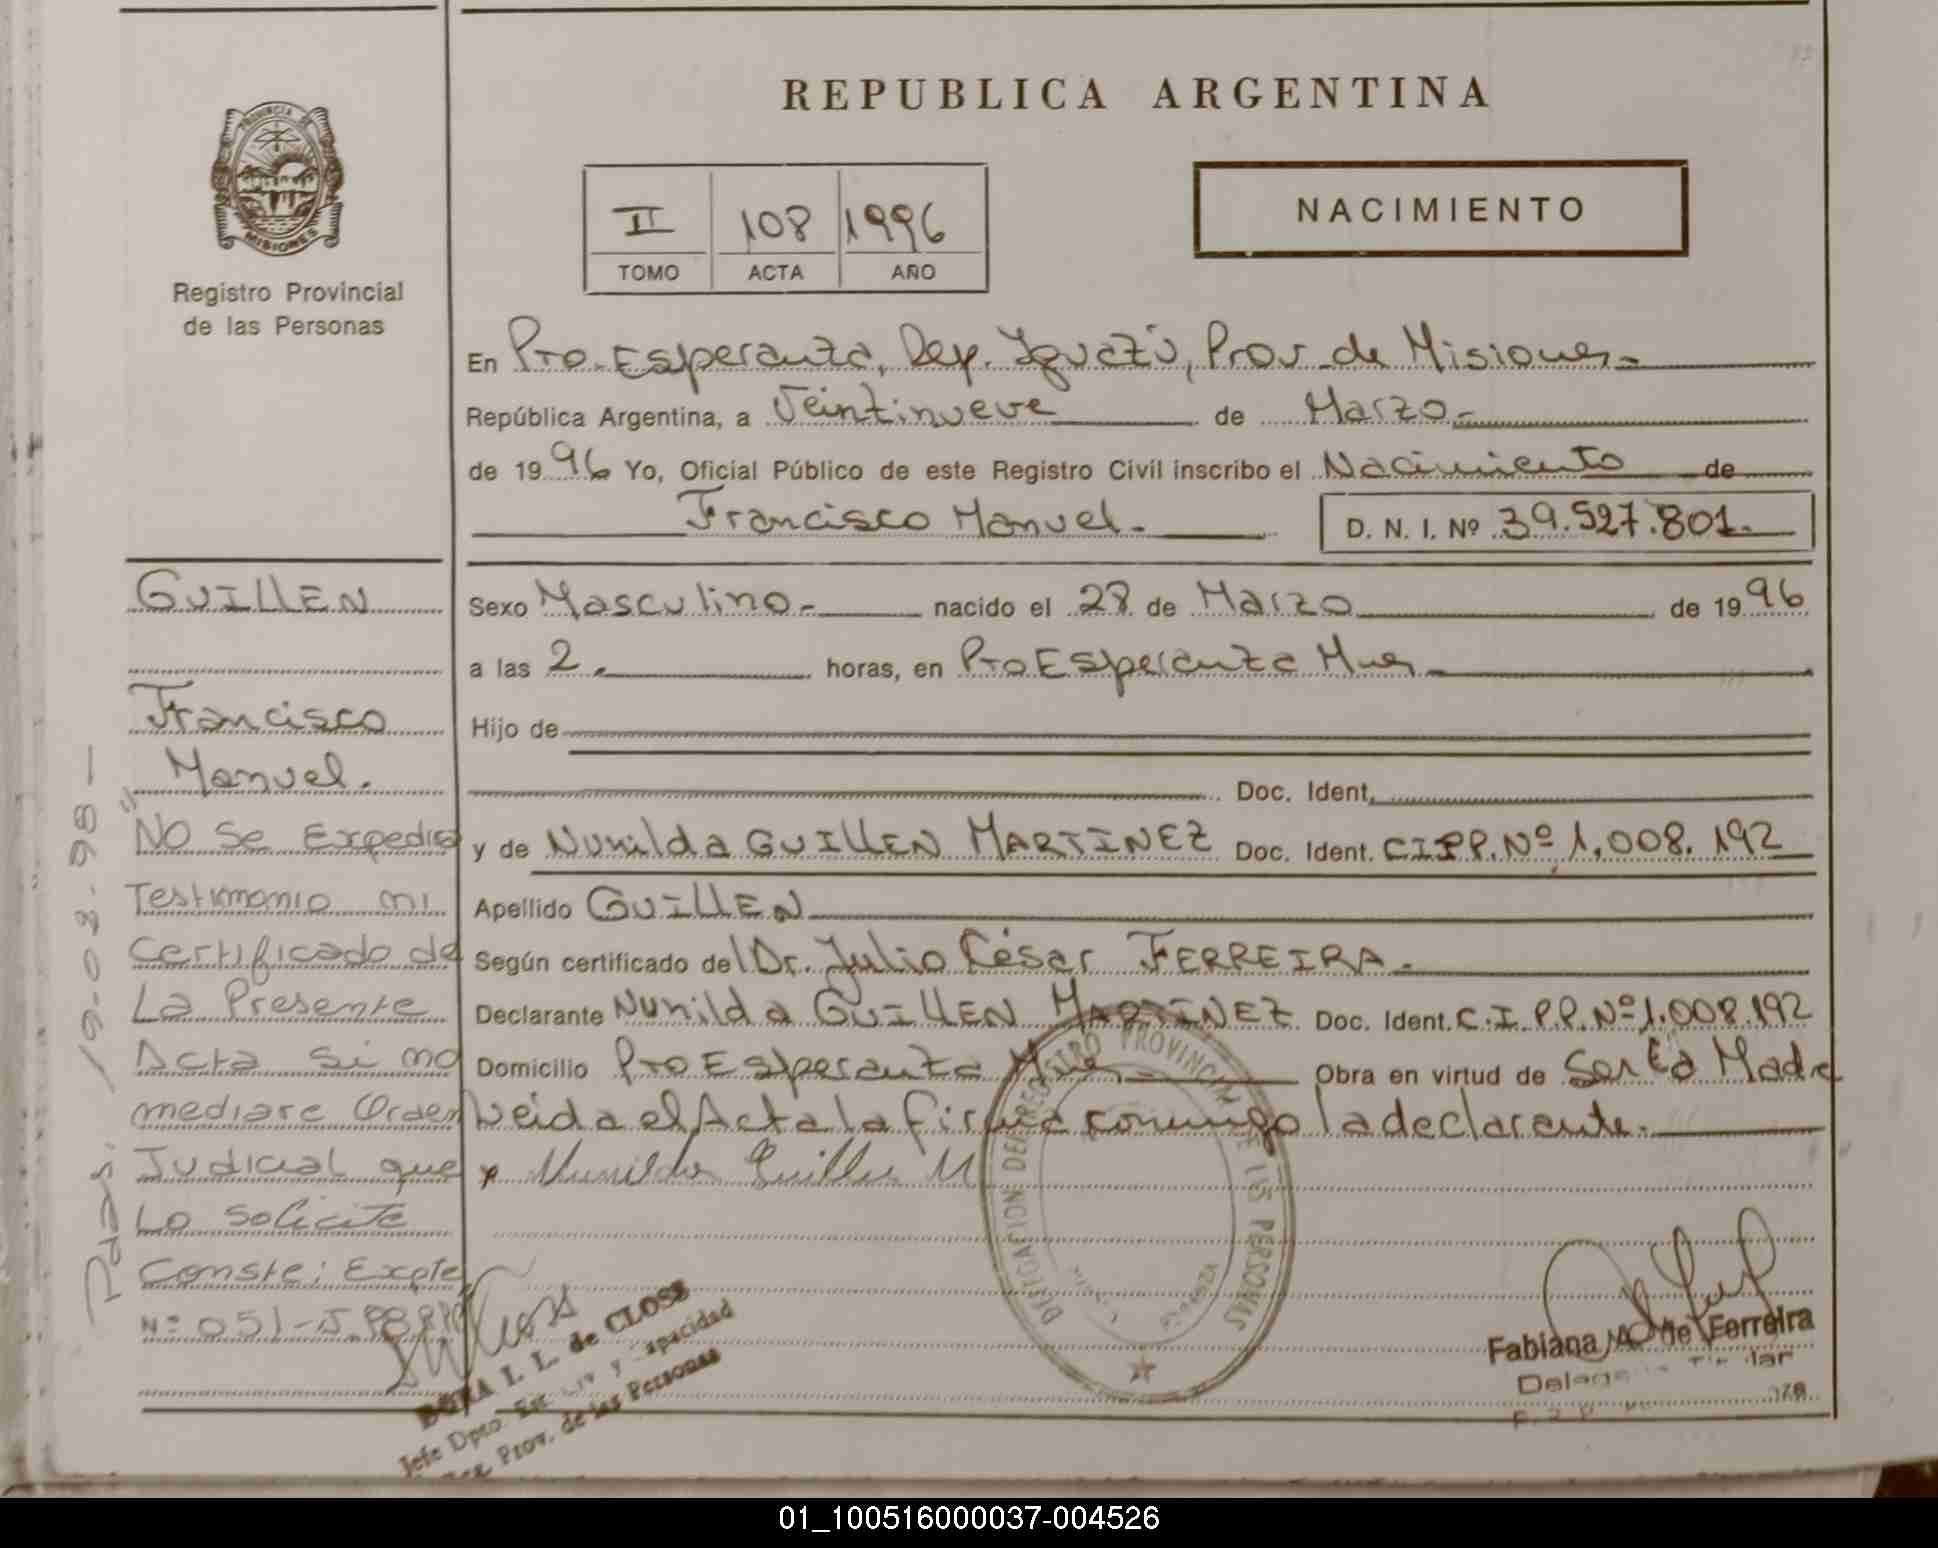 REPUBLICA ARGENTINA
PROVINCIA DE
MISIONES
Registro Provincial
de las Personas
II 108 1996
TOMO ACTA AÑO
NACIMIENTO
En Pto. Esperanza, Dep. Iguazú, Prov. de Misiones.
República Argentina, a Veintinueve de Marzo.
de 1996 Yo, Oficial Público de este Registro Civil inscribo el Nacimiento de
Francisco Manuel. D. N. I. Nº 39.527.801.
Sexo Masculino. nacido el 28 de Marzo de 1996
a las 2. horas, en Pto Esperanza Mnes.
Hijo de
Doc. Ident.
y de Nunilda GUILLEN MARTINEZ Doc. Ident. C.I.P.P. Nº 1.008.192
Apellido GUILLEN
Según certificado del Dr. Julio César FERREIRA.
Declarante Nunilda GUILLEN MARTINEZ Doc. Ident. C.I.P.P. Nº 1.008.192
Domicilio Pto Esperanza Mnes. Obra en virtud de Ser La Madre
Leida el Acta la firma conmigo la declarante.
x Nunilda Guillen M
GUILLEN
Francisco
Manuel.
"NO Se Expedirá
Testimonio ni
Certificado de
La Presente
Acta si no
mediare Orden
Judicial que
Lo Solicite
Conste: Expte
Nº 051-J.
Pdas. 19-02-98
DELEGACION DEL REGISTRO PROVINCIAL DE LAS PERSONAS
I. L. de CLOSS
Jefe Dpto. y Capacidad
Reg. Prov. de las Personas
Fabiana A. de Ferreira
Delegada Titular
01_100516000037-004526